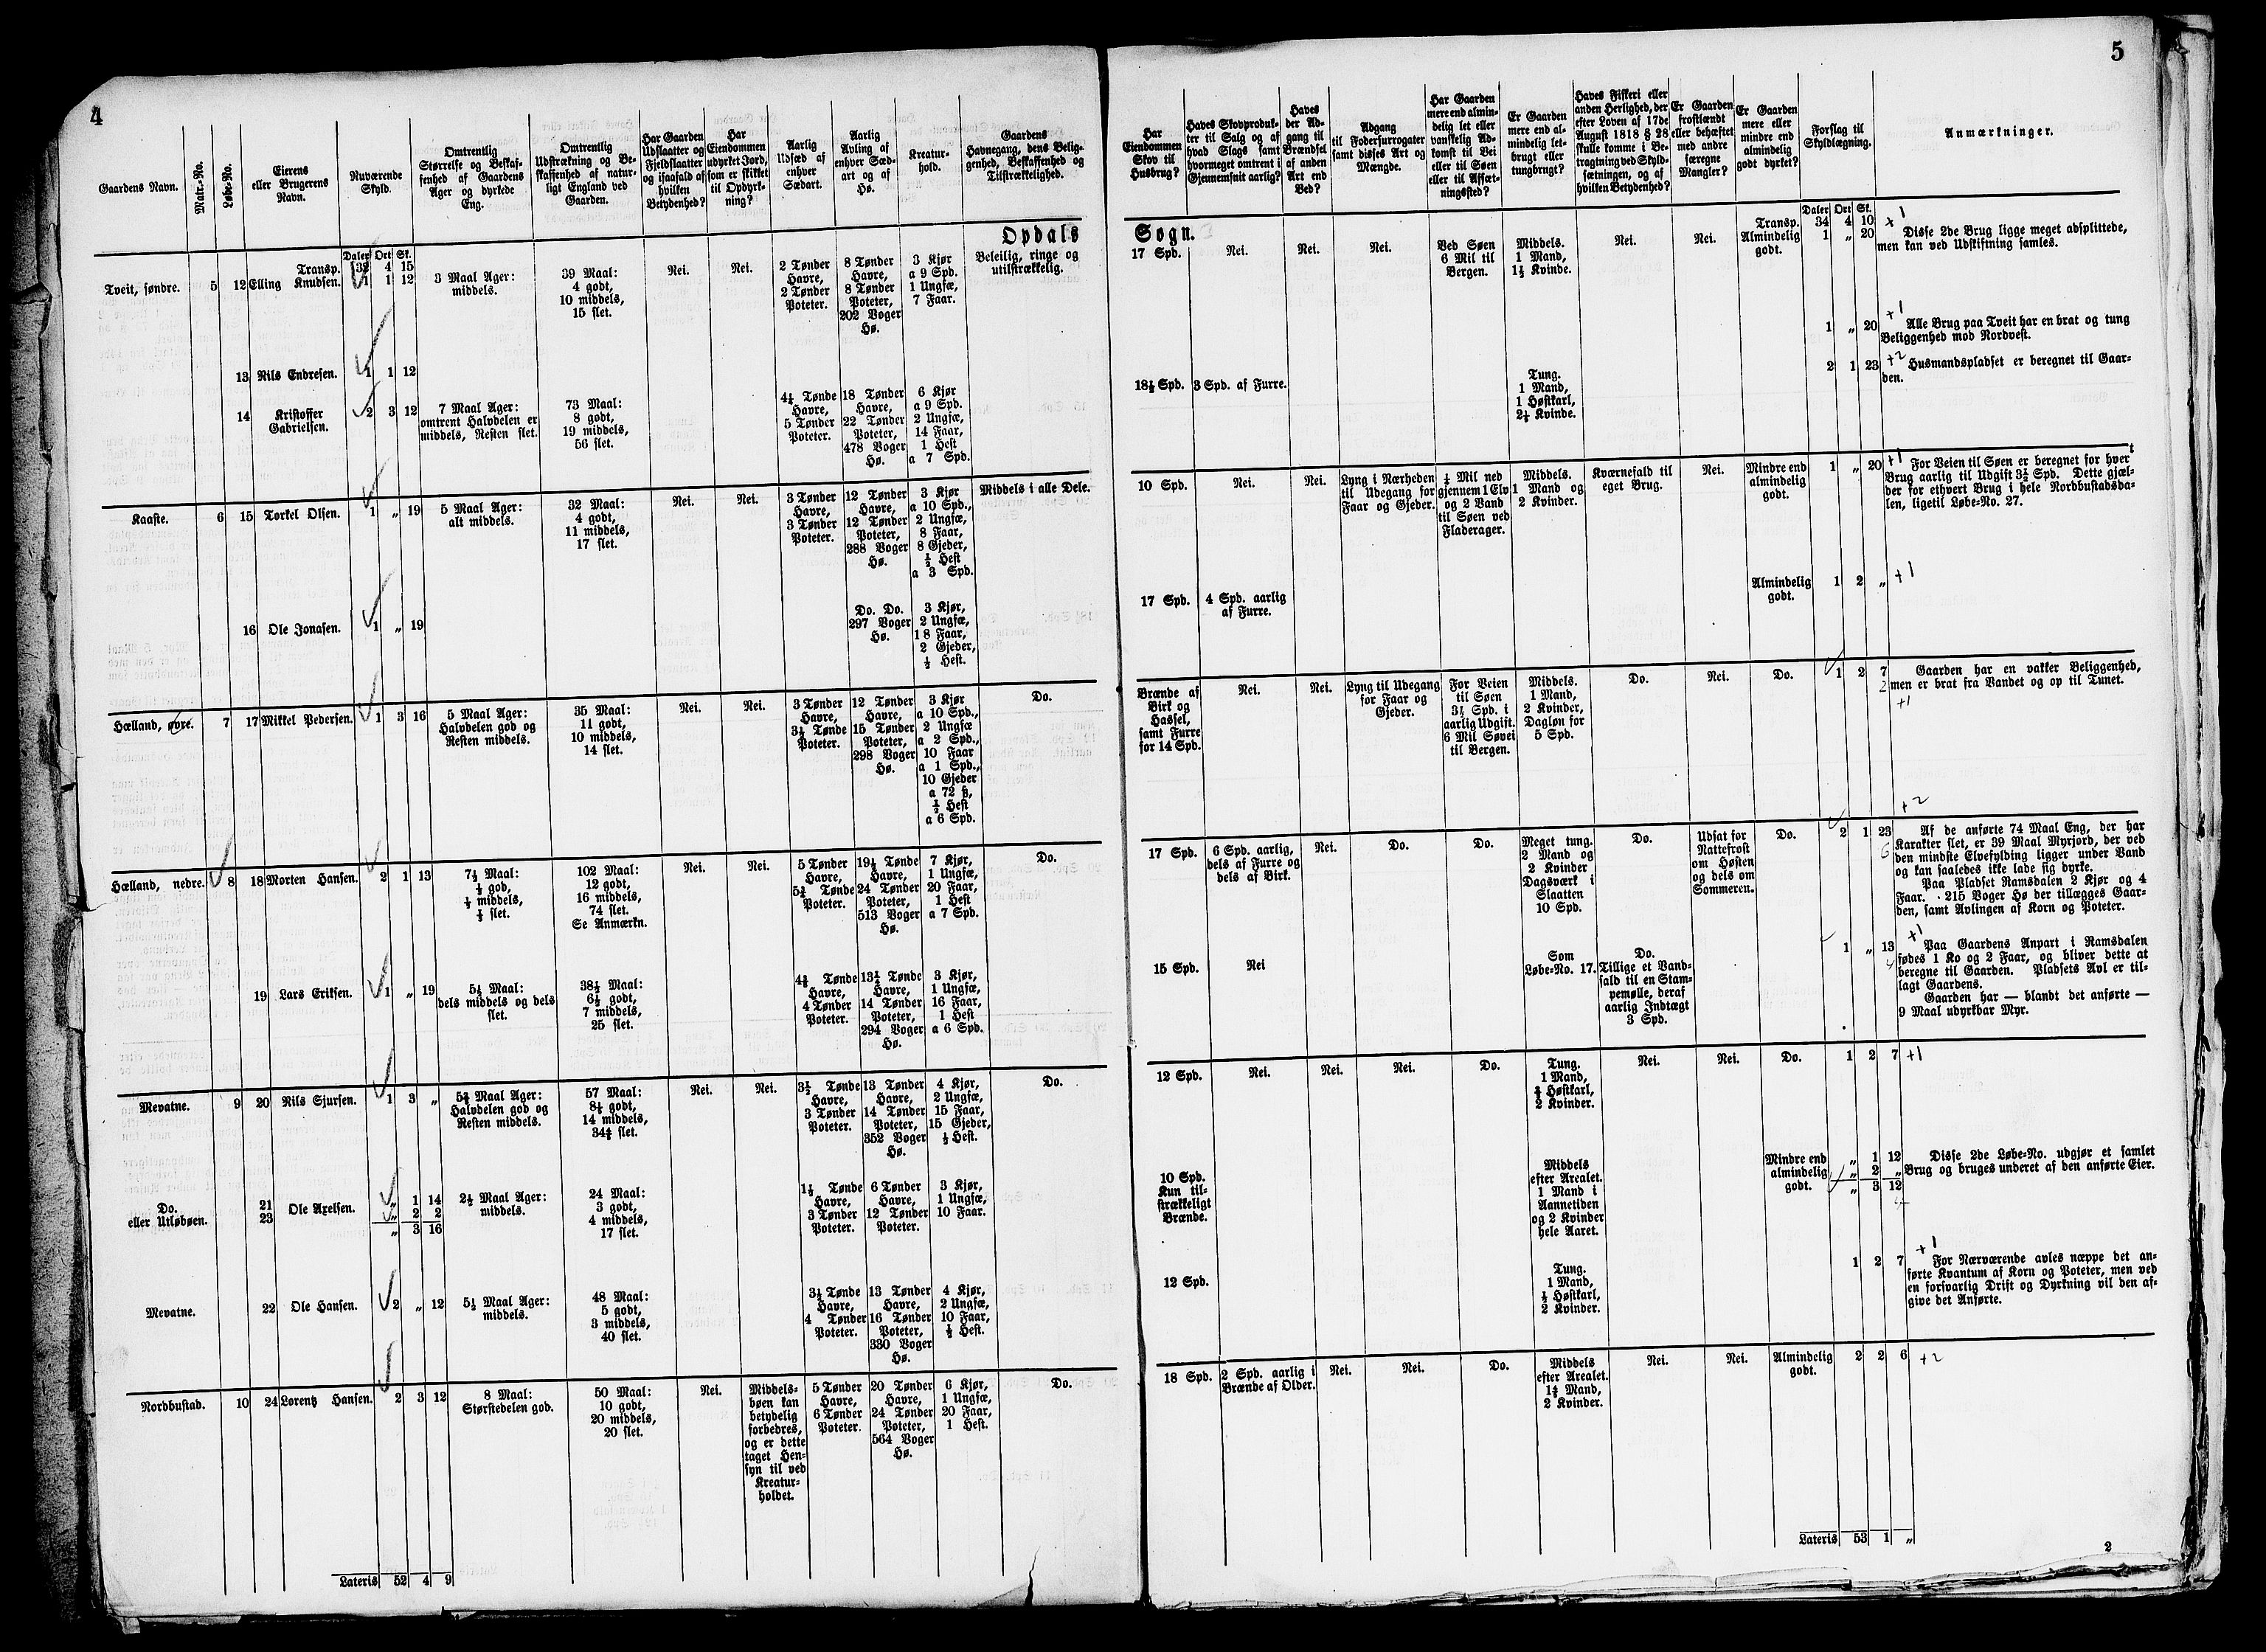 4
Gaardens Navn.
Matr.-No.
Løbe-No.
Eierens
eller Brugerens
Navn.
Nuværende
Skyld.
Omtrentlig
Størrelse og Beskaf-
fenhed af Gaardens
Ager og dyrkede
Eng.
Omtrentlig
Udstrækning og Be-
skaffenhed af natur-
ligt England ved
Gaarden.
Har Gaarden
Udslaatter og
Fjeldslaatter
og isaafald af
hvilken
Betydenhed?
Har
Eiendommen
udyrket Jord,
som er skikket
til Opdyrk-
ning?
Aarlig
Udsæd af
enhver
Sædart.
Aarlig
Avling af
enhver Sæd-
art og af
Hø.
Kreatur-
hold.
Gaardens
Havnegang, dens Belig-
genhed, Beskaffenhed og
Tilstrækkelighed.
Opdals
Daler Ort Sk.
Transp. 32 4 15
Tveit, søndre. 5 12 Elling Knudsen. 1 1 12
3 Maal Ager:
middels.
39 Maal:
4 godt,
10 middels,
15 slet.
Nei.
Nei.
2 Tønder
Havre,
2 Tønder
Poteter.
8 Tønder
Havre,
8 Tønder
Poteter,
202 Voger
Hø.
3 Kjør
a 9 Spd.
1 Ungfæ,
7 Faar.
Beleilig, ringe og
utilstrækkelig.
13 Nils Endresen. 1 1 12
14 Kristoffer
Gabrielsen.
2 3 12
7 Maal Ager:
omtrent Halvdelen er
middels, Resten slet.
73 Maal:
8 godt,
19 middels,
56 slet.
4½ Tønde
Havre,
5 Tønder
Poteter.
18 Tønder
Havre,
22 Tønder
Poteter,
478 Voger
Hø.
6 Kjør
a 9 Spd.
2 Ungfæ,
14 Faar,
1 Hest
a 7 Spd.
Kaaste. 6 15 Torkel Olsen. 1 „ 19
5 Maal Ager:
alt middels.
32 Maal:
4 godt,
11 middels,
17 slet.
Nei.
Nei.
3 Tønder
Havre,
3 Tønder
Poteter.
12 Tønder
Havre,
12 Tønder
Poteter,
288 Voger
Hø.
3 Kjør
a 10 Spd.,
2 Ungfæ,
8 Faar,
8 Gjeder,
½ Hest
a 3 Spd.
Middels i alle Dele.
16 Ole Jonasen. 1 „ 19
Do. Do.
297 Voger
Hø.
3 Kjør,
2 Ungfæ,
18 Faar,
2 Gjeder,
½ Hest.
Hælland, øvre. 7 17 Mikkel Pedersen. 1 3 16
5 Maal Ager:
Halvdelen god og
Resten middels.
35 Maal:
11 godt,
10 middels,
14 slet.
Nei.
Nei.
3 Tønder
Havre,
3½ Tønde
Poteter.
12 Tønder
Havre,
15 Tønder
Poteter,
298 Voger
Hø.
3 Kjør
a 10 Spd.,
2 Ungfæ
a 2 Spd.,
10 Faar
a 1 Spd.,
10 Gjeder
a 72 ß,
½ Hest
a 6 Spd.
Do.
Hælland, nedre. 8 18 Morten Hansen. 2 1 13
7½ Maal:
god,
middels,
slet.
102 Maal:
12 godt,
16 middels,
74 slet.
Se Anmærkn.
Nei.
Nei.
5 Tønder
Havre,
5½ Tønde
Poteter.
19½ Tønde
Havre,
24 Tønder
Poteter,
513 Voger
Hø.
7 Kjør,
1 Ungfæ,
20 Faar,
1 Hest
a 7 Spd.
Do.
19 Lars Eriksen. 1 „ 19
5½ Maal:
dels middels og dels
slet.
38½ Maal:
6½ godt,
7 middels,
25 slet.
Tønde
Havre,
4 Tønder
Poteter.
13½ Tønde
Havre,
14 Tønder
Poteter,
294 Voger
Hø.
3 Kjør,
1 Ungfæ,
16 Faar,
1 Hest
a 6 Spd.
Mevatne. 9 20 Nils Sjursen. 1 3 „
Maal Ager:
Halvdelen god og
Resten middels.
57 Maal:
godt,
14 middels,
slet.
Nei.
Nei.
3½ Tønde
Havre,
3 Tønder
Poteter.
13 Tønder
Havre,
14 Tønder
Poteter,
352 Voger
Hø.
4 Kjør,
2 Ungfæ,
15 Faar,
15 Gjeder,
½ Hest.
Do.
Do.
eller Utløbøen.
21
23
Ole Axelsen.
„ 1 14
„ 2 2
„ 3 16
2½ Maal Ager:
middels.
24 Maal:
3 godt,
4 middels,
17 slet.
1½ Tønde
Havre,
3 Tønder
Poteter.
6 Tønder
Havre,
12 Tønder
Poteter.
3 Kjør,
1 Ungfæ,
10 Faar.
Mevatne. 22 Ole Hansen. 2 „ 12
5½ Maal Ager:
middels.
48 Maal:
5 godt,
3 middels,
40 slet.
3½ Tønde
Havre,
4 Tønder
Poteter.
13 Tønder
Havre,
16 Tønder
Poteter,
330 Voger
Hø.
4 Kjør,
2 Ungfæ,
10 Faar,
½ Hest.
Nordbustad. 10 24 Lorentz Hansen. 2 3 12
8 Maal:
Størstedelen god.
50 Maal:
10 godt,
20 middels,
20 slet.
Nei.
Middels-
bøen kan
betydelig
forbedres,
og er dette
taget Hen-
syn til ved
Kreatur-
holdet.
5 Tønder
Havre,
6 Tønder
Poteter.
20 Tønder
Havre,
24 Tønder
Poteter,
564 Voger
Hø.
6 Kjør,
1 Ungfæ,
20 Faar,
1 Hest.
Do.
Lateris 52 4 9
5
Har
Eiendommen
Skov til
Husbrug?
Haves Skovproduk-
ter til Salg og af
hvad Slags samt
hvormeget omtrent i
Gjennemsnit aarlig?
Haves
der Ad-
gang til
Brændsel
af anden
Art end
Ved?
Adgang
til Foderfurrogater
samt disses Art og
Mængde.
Har Gaarden
mere end almin-
delig let eller
vanskelig Ad-
komst til Vei
eller til Søen
eller til Afsæt-
ningssted?
Er Gaarden
mere end al-
mindelig let-
brugt eller
tungbrugt?
Haves Fiskeri eller
anden Herlighed, der
efter Loven af 17de
August 1818 § 28
skulle komme i Be-
tragtning ved Skyld-
sætningen, og af
hvilken Betydenhed?
Er Gaarden
frostlændt
eller behæftet
med andre
særegne
Mangler?
Er Gaarden
mere eller
mindre end
almindelig
godt dyrket?
Forslag til
Skyldlægning.
Anmærkninger.
Sogn.
Daler Ort Sk.
Transp. 34 4 10
17 Spd.
Nei.
Nei.
Nei.
Ved Søen
6 Mil til
Bergen.
Middels.
1 Mand,
1½ Kvinde.
Nei.
Nei.
Almindelig
godt.
1 „ 20
+1
Disse 2de Brug ligge meget adsplittede,
men kan ved Udskiftning samles.
1 „ 20
+1
Alle Brug paa Tveit har en brat og tung
Beliggenhed mod Nordvest.
18½ Spd.
3 Spd. af Furre.
Tung.
1 Mand,
1 Høstkarl,
2½ Kvinde.
2 1 23
+2
Husmandspladset er beregnet til Gaar-
den.
10 Spd.
Nei.
Nei.
Lyng i Nærheden
til Udegang for
Faar og Gjeder.
Mil ned
gjennem 1 Elv
og 2 Vand
til Søen ved
Fladerager.
Middels.
1 Mand og
2 Kvinder.
Kværnefald til
eget Brug.
Nei.
Mindre end
almindelig
godt.
1 „ 20
+1
For Veien til Søen er beregnet for hvert
Brug aarlig til Udgift 3½ Spd. Dette gjæl-
der for ethvert Brug i hele Nordbustadsda-
len, ligetil Løbe-No. 27.
17 Spd.
4 Spd. aarlig
af Furre.
Almindelig
godt.
1 2 „
+1
Brænde af
Birk og
Hassel,
samt Furre
for 14 Spd.
Nei.
Nei.
Lyng til Udegang
for Faar og
Gjeder.
For Veien
til Søen
3½ Spd. i
aarlig Udgift.
6 Mil Søvei
til Bergen.
Middels.
1 Mand,
2 Kvinder,
Dagløn for
5 Spd.
Do.
Nei.
Do.
1 2 7
2
+1
Gaarden har en vakker Beliggenhed,
men er brat fra Vandet og op til Tunet.
17 Spd.
6 Spd. aarlig,
dels af Furre og
dels af Birk.
Nei.
Do.
Do.
Meget tung.
2 Mand og
2 Kvinder
Dagsværk i
Slaatten
10 Spd.
Do.
Udsat for
Nattefrost
om Høsten
og dels om
Sommeren.
Do.
2 1 23
6
+2
Af de anførte 74 Maal Eng, der har
Karakter slet, er 39 Maal Myrjord, der ved
den mindste Elvefylding ligger under Vand
og kan saaledes ikke lade sig dyrke.
Paa Pladset Ramsdalen 2 Kjør og 4
Faar. 215 Voger Hø der tillægges Gaar-
den, samt Avlingen af Korn og Poteter.
15 Spd.
Nei
Som
Løbe-No. 17.
Do.
Tillige et Vand-
fald til en Stam-
pemølle, deraf
aarlig Indtægt
3 Spd.
1 „ 13
4
+1
Paa Gaardens Anpart i Ramsdalen
fødes 1 Ko og 2 Faar, og bliver dette at
beregne til Gaarden. Pladsets Avl er til-
lagt Gaardens.
Gaarden har — blandt det anførte —
9 Maal udyrkbar Myr.
12 Spd.
Nei.
Nei.
Nei.
Do.
Tung.
1 Mand,
Høstkarl,
2 Kvinder.
Nei.
Nei.
Do.
1 2 7
+1
10 Spd.
Kun til-
strækkeligt
Brænde.
Middels
efter Arealet.
1 Mand i
Aannetiden
og 2 Kvinder
hele Aaret.
Mindre end
almindelig
godt.
„ 1 12
„ 2 „
„ 3 12
4
Disse 2de Løbe-No. udgjør et samlet
Brug og bruges underet af den anførte Eier.
12 Spd.
Tung.
1 Mand,
½ Høstkarl,
2 Kvinder.
1 2 7
+1
For Nærværende avles næppe det an-
førte Kvantum af Korn og Poteter, men ved
en forsvarlig Drift og Dyrkning vil den af-
give det Anførte.
18 Spd.
2 Spd. aarlig i
Brænde af Older.
Nei.
Nei.
Do.
Middels
efter Arealet.
Mand,
2 Kvinder.
Nei.
Nei.
Almindelig
godt.
2 2 6
+2
Lateris 53 1 „
2